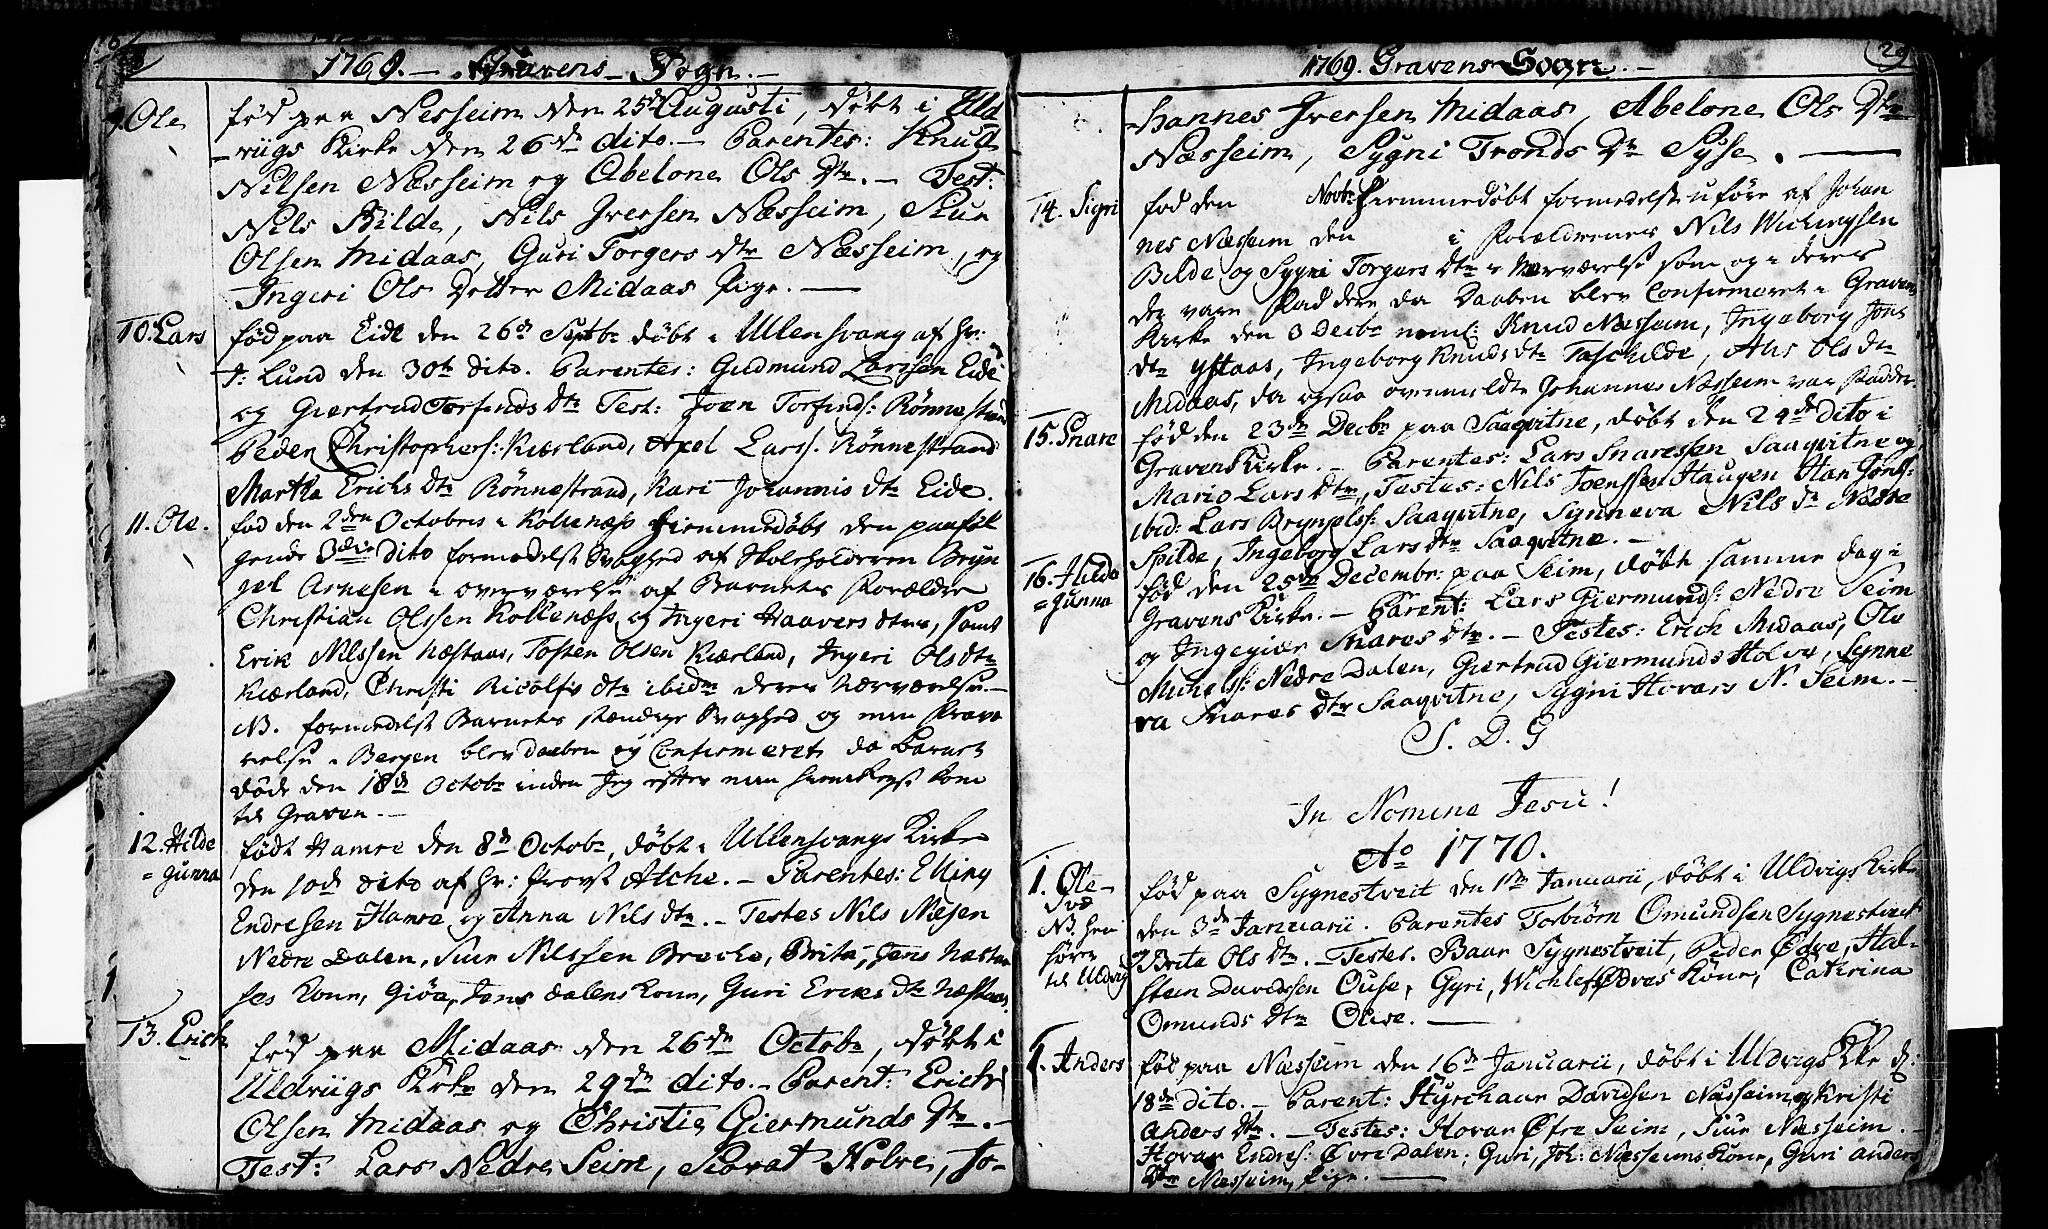 1769. — Gravens — Sogn. —
9. Ole
fød paa Nesseim den 25de Augusti, døbt i Uld
-viigs Kirke den 26de dito. — Parentes: Knud
Nilsen Næsseim og Abelone Ols Dtr. — Test:
Nils Bilde, Nils Iversen Næsseim, Siur
Olsen Midaas, Guri Torgers dtr Næsseim, og
Ingeri Ols Dotter Midaas Pige. —
10. Lars
fød paa Eide den 26de Septbr døbt i Ullensvang af Hr:
J: Lund den 30te dito. Parentes: Gudmund Larssen Eide
og Giertrud Torfinds dtr Test: Joen Torfinds: Rønnestrand
Peder Christophers: Kiærland, Axel Larss. Rønnestrand
Martha Erichs dtr Rønnestrand, Kari Johannis dtr Eide.
11. Ole.
fød den 2den Octobris i Kollenæss hiemmedøbt den paaføl
gende 3die dito formedelst Svaghed af Skoleholderen Bryn
gel Arnesen i overværelse af Barnets Forældre
Christian Olssen Kollenæss og Ingeri Haavers dtr, samt
Erik Nilssen Næstaas, Tosten Olsen Kiærland, Ingeri Ols dtr
Kiærland, Christi Ricolfs dtr ibidm deres Nærværelse. —
NB. formedelst Barnets stændige Svaghed og min Fravæ
relse i Bergen blev Daaben ey Confirmeret da Barnet
døde den 18de Octobr inden Jeg efter min hiemkomst kom
til Graven. —
12. Hilde
= gunna
født Hamre den 8de Octobr, døbt i Ullensvangs Kirke
den 10de dito af Hr: Provst Atche. — Parentes: Elling
Endresen Hamre og Anna Nils dtr. — Testes Nils Nilsen
Nedre Dalen, Siur Nilssen Bracke, Brita, Jens Næstaa
ses Kone, Giøa, Jans Dalens Kone, Guri Eriks dtr Næstaas.
13. Erich
fød paa Midaas den 26de Octobr, døbt i
Uldviigs Kirke den 29de dito. — Parent: Erich
Olsen Midaas og Christi Giermunds Dtr. —
Test: Lars Nedre Seim, Siovat Holve, Jo-
1769. Gravens Sogn. —
29
-hannes Iversen Midaas, Abelone Ols Dtr
Næsseim, Sygni Tronds Dtr Syse. —
14. Sigri
fød den Novbr hiemmedøbt formedelst uføre af Johan
nes Næsseim den i Forældrenes Nils Wichingsen
Bilde og Sygni Torgers dtr s Nærværelse som og i deres
der vare Faddere da Daaben blev Confirmeret i Gravens
Kirke den 3 Decbr neml: Knud Næsseim, Ingeborg Jons
dtr Ystaas, Ingeborg Knuds dtr Taschilde, Ols dtr
Midaas, da ogsaa ovenmeldte Johannes Næsseim var Fadder.
15. Snare
fød den 23de Decbr paa Saaqvitne, døbt den 24de dito i
Gravens Kirke. — Parentes: Lars Snaressen Saaqvitne og
Mario Lars dtr, Testes: Nils Joenssen Haugen,
ibid: Lars Brynjelss: Saaqvitne, Synneva Nils dtr Nedre
Spilde, Ingeborg Lars dtr Saaqvitne. —
16. Hilde
= gunna
fød den 25de Decembr: paa Seim, døbt samme dag i
Gravens Kirke. — Parent: Lars Giermunds: Nedre Seim
og Ingegiær Snares dtr. — Testes: Erich Midaas, Ole
Nedre Dalen, Giertrud Giermunds Holve, Synne
va Snares dtr Saaqvitne, Sygni Hovars N. Seim. —
S. D. G
In Nomine Jesu!
Ao 1770.
1. Ole —
NB. hen
hører
til Uldvig
fød paa Sygnestveit den 1ste Januarii, døbt i Uldvigs Kirke
den 3de Januarii. Parentes Torbiørn Omundsen Sygnestveit
Brita Ols dtr. — Testes. Baar Sygnestveit, Peder Ødve, Hal-
stein Davidssen Ouse, Gyri, Wichlefs Ødves Kone, Catrina
Omunds dtr Ouse. —
1. Anders
fød paa Næsseim den 16de Januarii, døbt i Uldvigs Kke d:
18de dito. — Parent: Styrchaar Davidsen Næsseim og Kristi
Anders dtr. — Testes: Hovar Øfre Seim, Siur Næsseim. —
Hovar Endres: Øvre Dalen, Guri, Joh: Næsseims Kone, Guri Anders
Dtr Næsseim, Pige. —